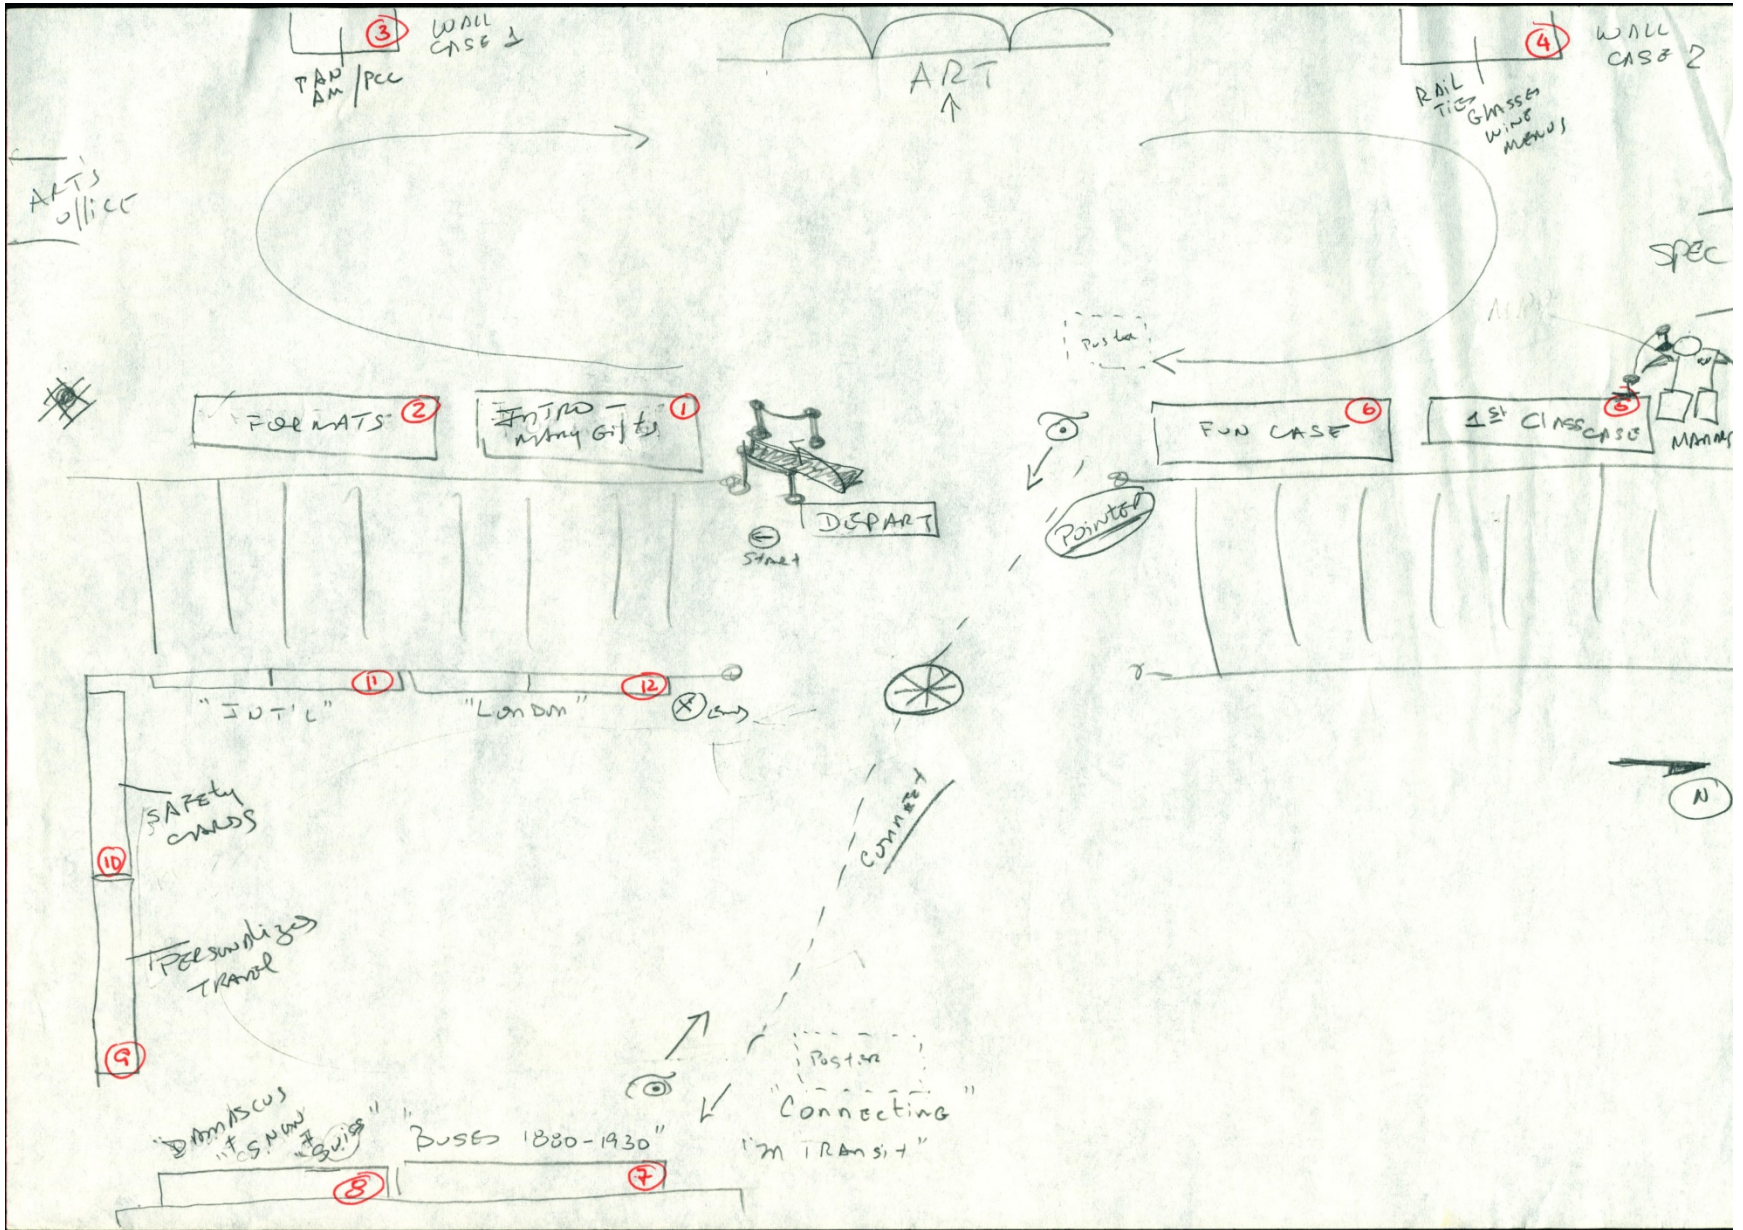 3
WALL
CASE 1
PAN
AM / PCC
ART
4
WALL
CASE 2
RAIL
TIES
GLASSES
WINE
MENUS
ART'S
OFFICE
SPEC
Poster
FORMATS
2
INTRO -
MANY Gifts
1
FUN CASE
6
1st Class
CASE
5
DEPART
Start
POINTER
11
"INT'L"
12
"LONDON"
X END
SAFETY
CARDS
10
CONNECT
N
PERSONALIZED
TRAVEL
9
Poster
"Connecting"
"IN TRANSIT"
"DAMASCUS
8
"BUSES 1880-1930"
7